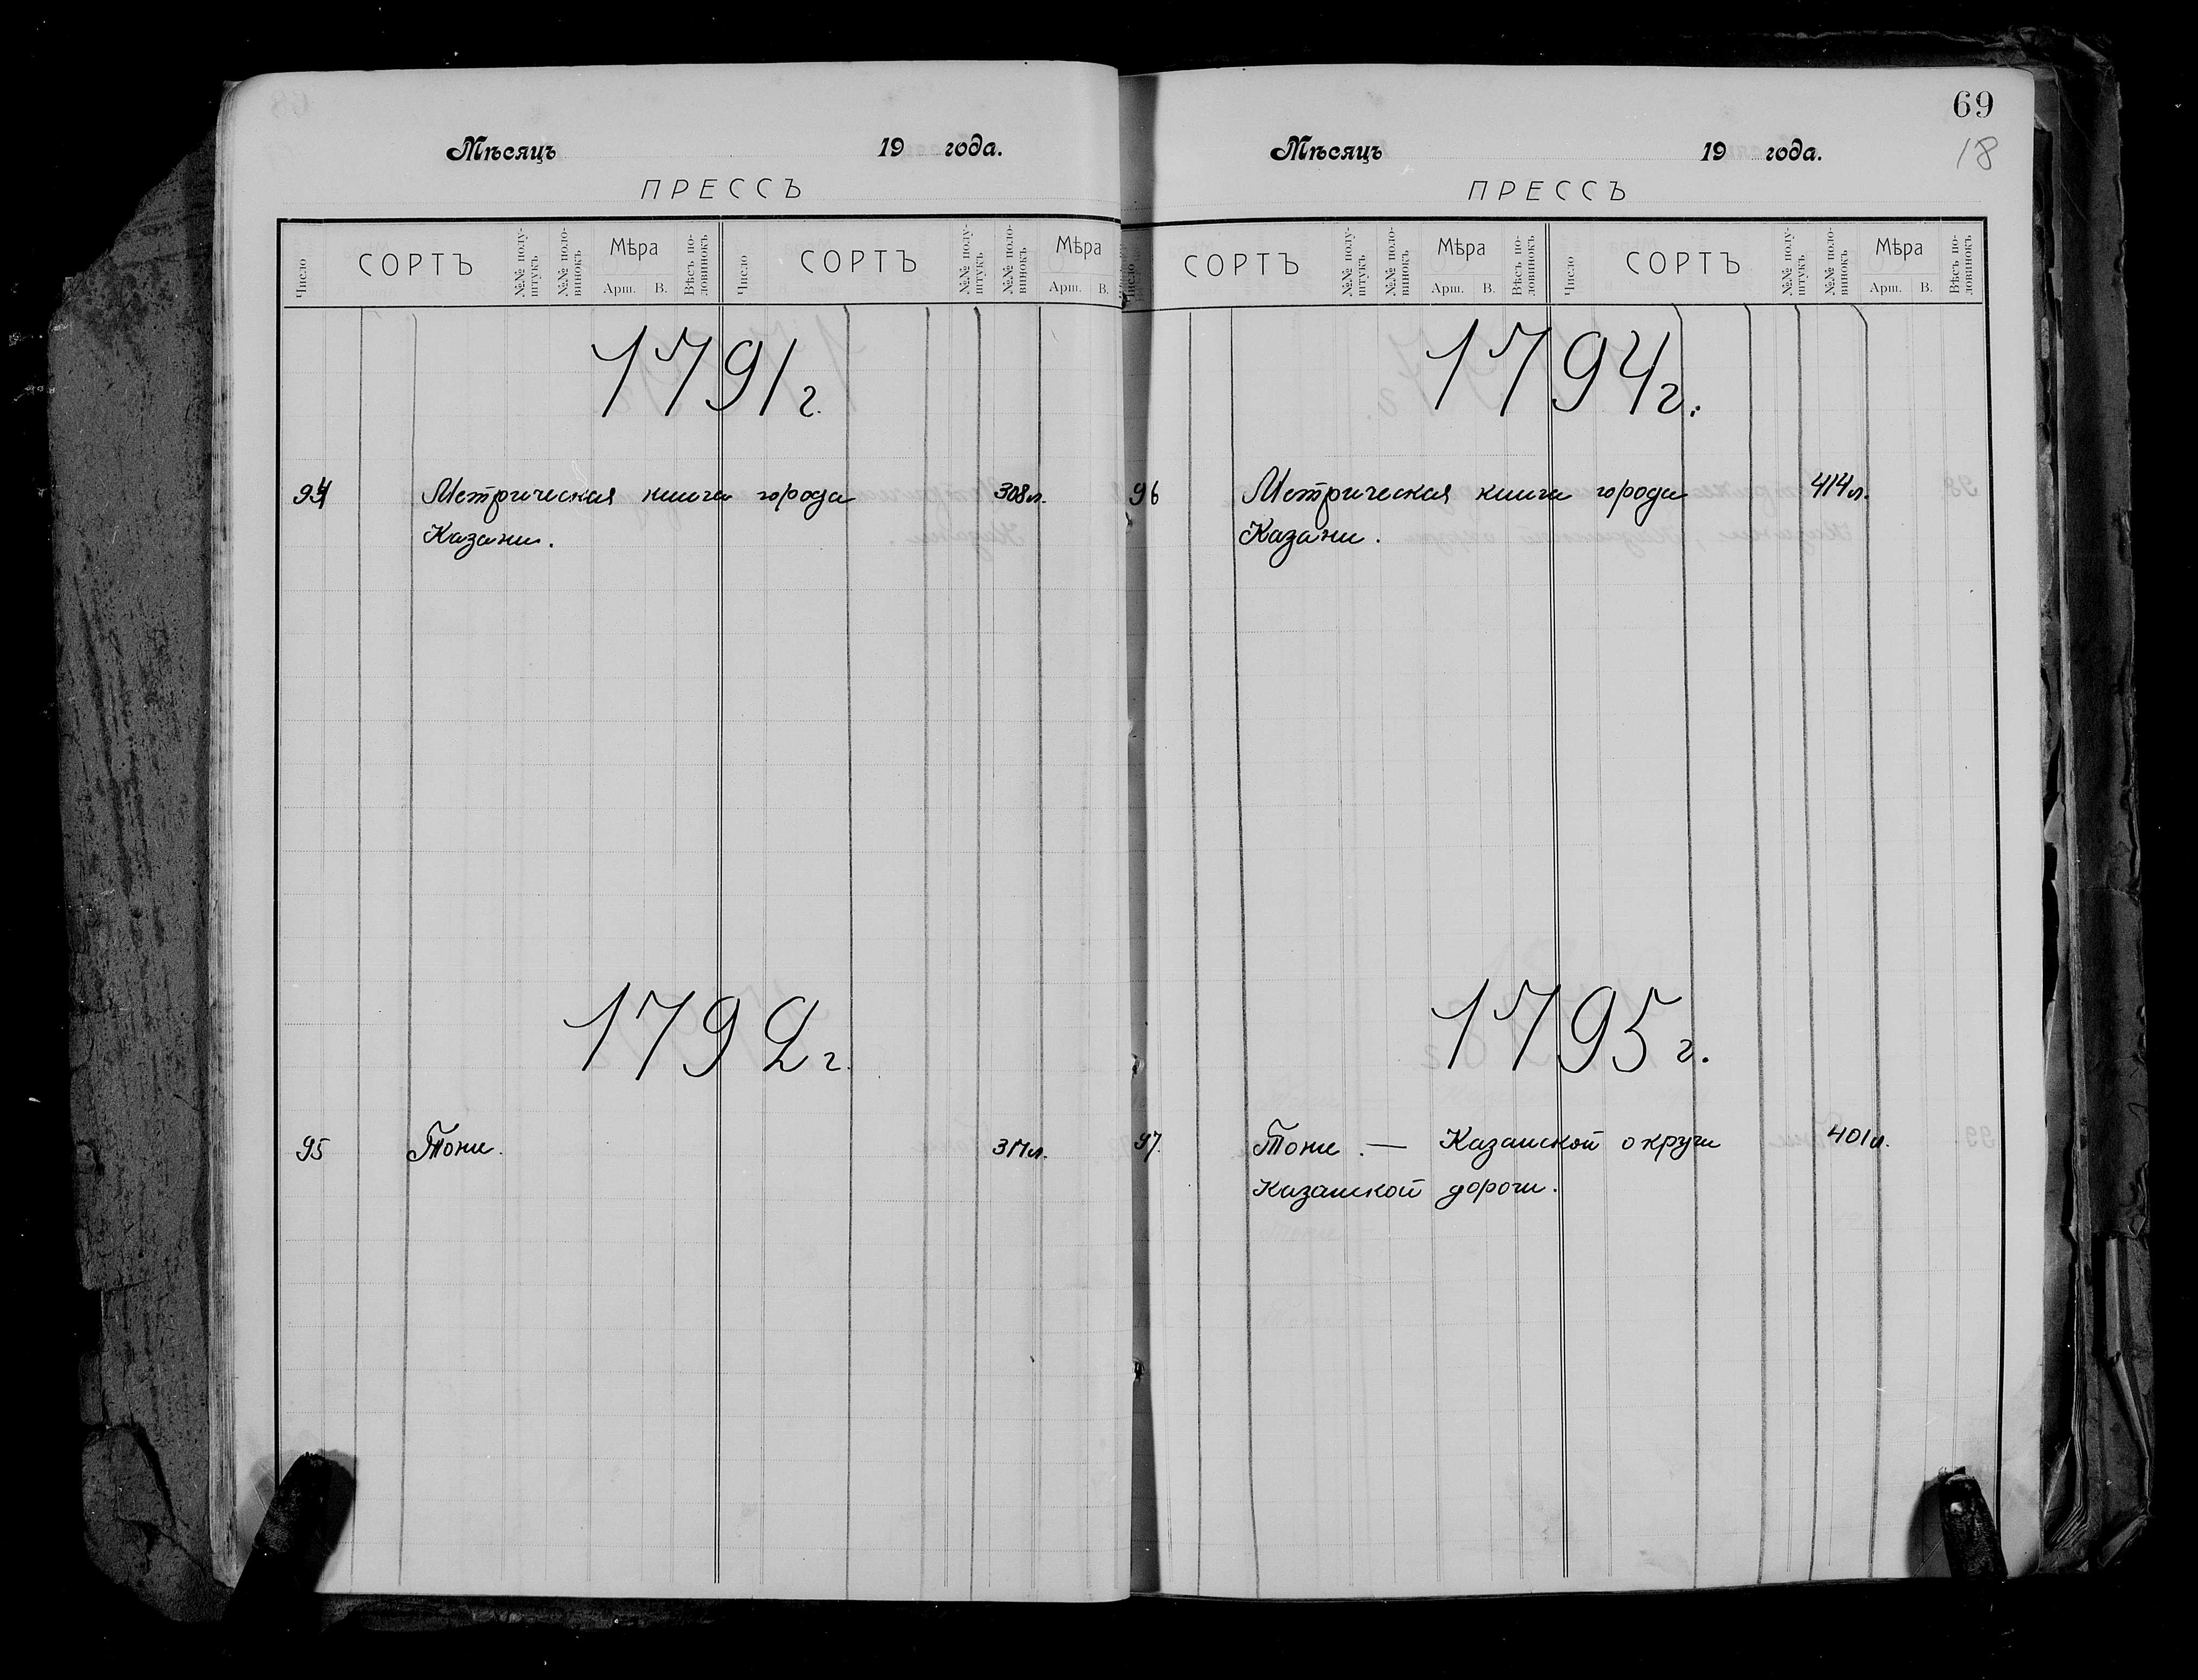 Мѣсяцъ 19 года.
ПРЕССЪ
Число СОРТЪ №№ полуштукъ №№ половинокъ Мѣра Арш. В. Вѣсъ половинокъ Число СОРТЪ №№ полуштукъ №№ половинокъ Мѣра Арш. В.
1791 г.
94 Метрическая книга города 308 л.
Казани.
1792 г.
95 Тоже. 317 л.
69
18
Мѣсяцъ 19 года.
ПРЕССЪ
Число СОРТЪ №№ полуштукъ №№ половинокъ Мѣра Арш. В. Вѣсъ половинокъ Число СОРТЪ №№ полуштукъ №№ половинокъ Мѣра Арш. В. Вѣсъ половинокъ
1794 г.
96 Метрическая книга города 414 л.
Казани.
1795 г.
97. Тоже. — Казанской округи 401 л.
Казанской дороги.